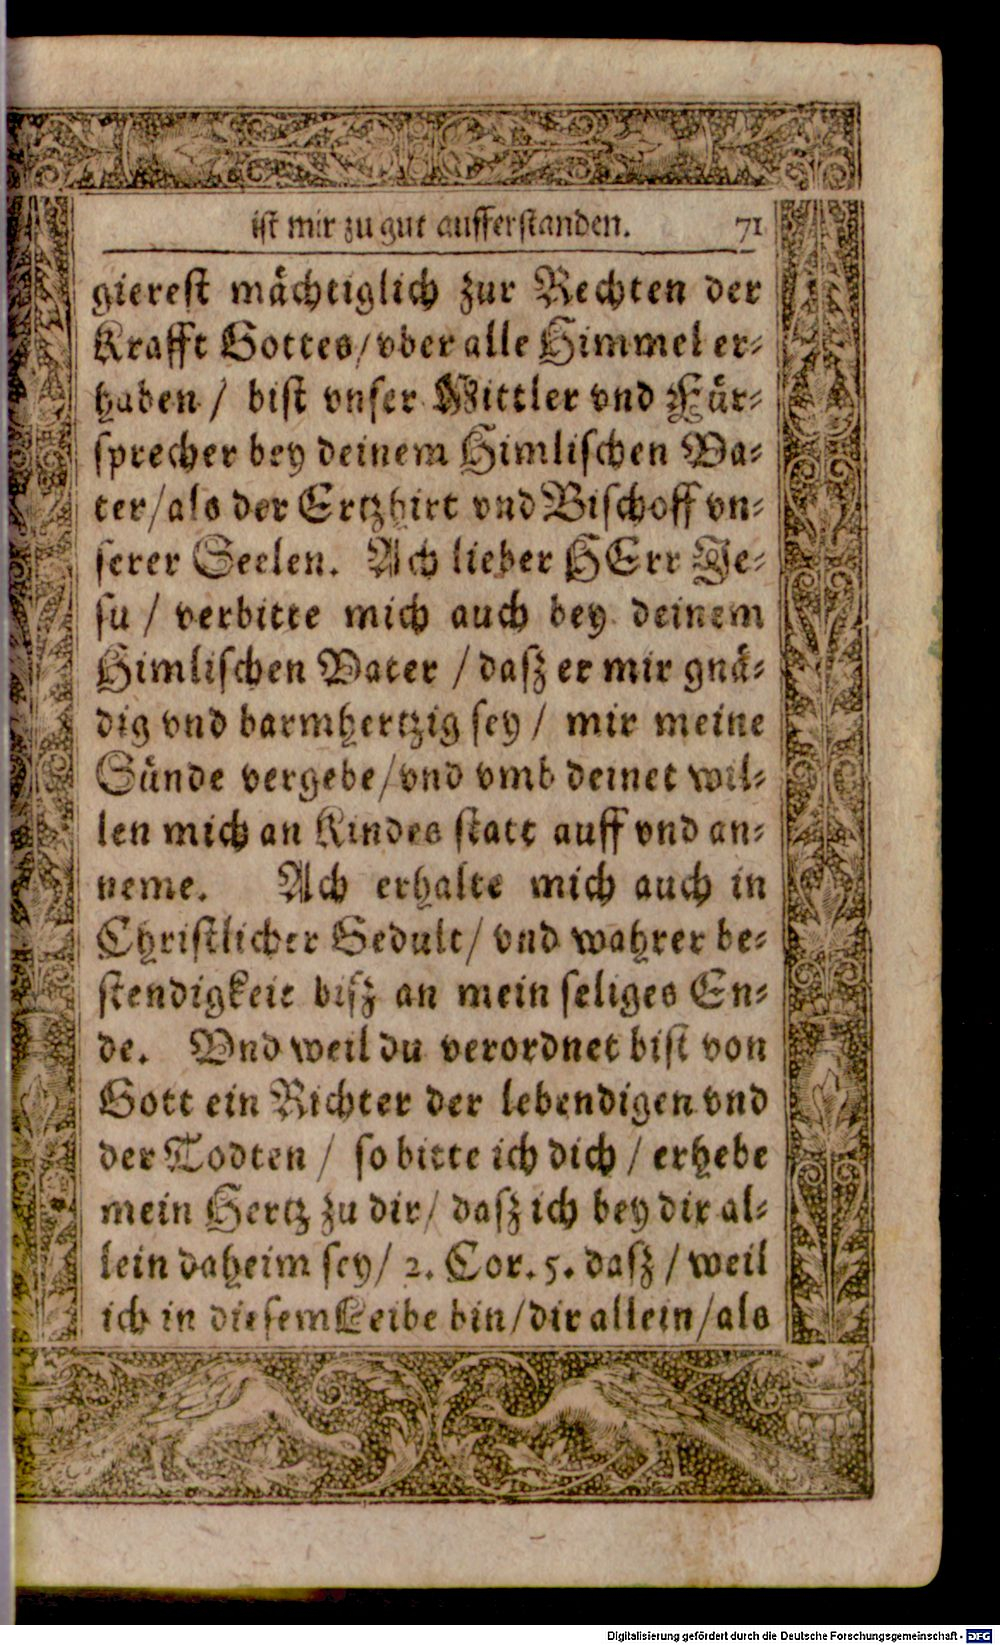 ist mir zu gut aufferstanden. 71
gierest mächtiglich zur Rechten der
Krafft Gottes/vber alle Himmel er-
haben / bist vnser Mittler vnd Für-
sprecher bey deinem Himlischen Va-
ter/als der Ertzhirt vnd Bischoff vn-
serer Seelen. Ach lieber HErr Je-
su / verbitte mich auch bey deinem
Himlischen Vater / dasz er mir gnä-
dig vnd barmhertzig sey / mir meine
Sünde vergebe/vnd vmb deinet wil-
len mich an Kindes statt auff vnd an-
neme. Ach erhalte mich auch in
Christlicher Gedult/ vnd wahrer be-
stendigkeit bisz an mein seliges En-
de. Vnd weil du verordnet bist von
Gott ein Richter der lebendigen vnd
der Todten / so bitte ich dich / erhebe
mein Hertz zu dir/ dasz ich bey dir al-
lein daheim sey/ 2. Cor. 5. dasz / weil
ich in diesem Leibe bin/dir allein/als
Digitalisierung gefördert durch die Deutsche Forschungsgemeinschaft - DFG